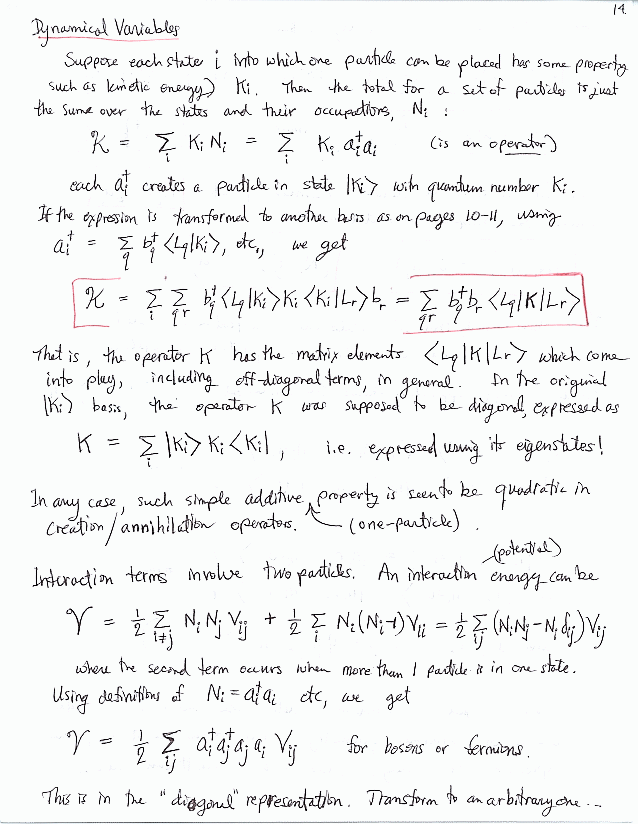 14
Dynamical Variables
Suppose each state i into which one particle can be placed has some property
(such as kinetic energy) Ki. Then the total for a set of particles is just
the sum over the states and their occupations, Ni :
𝒦 = Σ_i Ki Ni = Σ_i Ki a_i^† a_i (is an operator)
each a_i^† creates a particle in state |Ki> with quantum number Ki.
If the expression is transformed to another basis as on pages 10-11, using
a_i^† = Σ_q b_q^† <Lq|Ki>, etc., we get
𝒦 = Σ_i Σ_qr b_q^† <Lq|Ki> Ki <Ki|Lr> b_r = Σ_qr b_q^† b_r <Lq|K|Lr>
That is, the operator K has the matrix elements <Lq|K|Lr> which come
into play, including off-diagonal terms, in general. In the original
|Ki> basis, the operator K was supposed to be diagonal, expressed as
K = Σ_i |Ki> Ki <Ki| , i.e. expressed using its eigenstates!
In any case, such simple additive property is seen to be quadratic in
creation/annihilation operators. (one-particle).
(potential)
Interaction terms involve two particles. An interaction energy can be
𝒱 = 1/2 Σ_i≠j Ni Nj Vij + 1/2 Σ_i Ni(Ni-1) Vii = 1/2 Σ_ij (NiNj - Ni δij) Vij
where the second term occurs when more than 1 particle is in one state.
Using definitions of Ni = a_i^† a_i etc, we get
𝒱 = 1/2 Σ_ij a_i^† a_j^† a_j a_i Vij for bosons or fermions.
This is in the "diagonal" representation. Transform to an arbitrary one ...